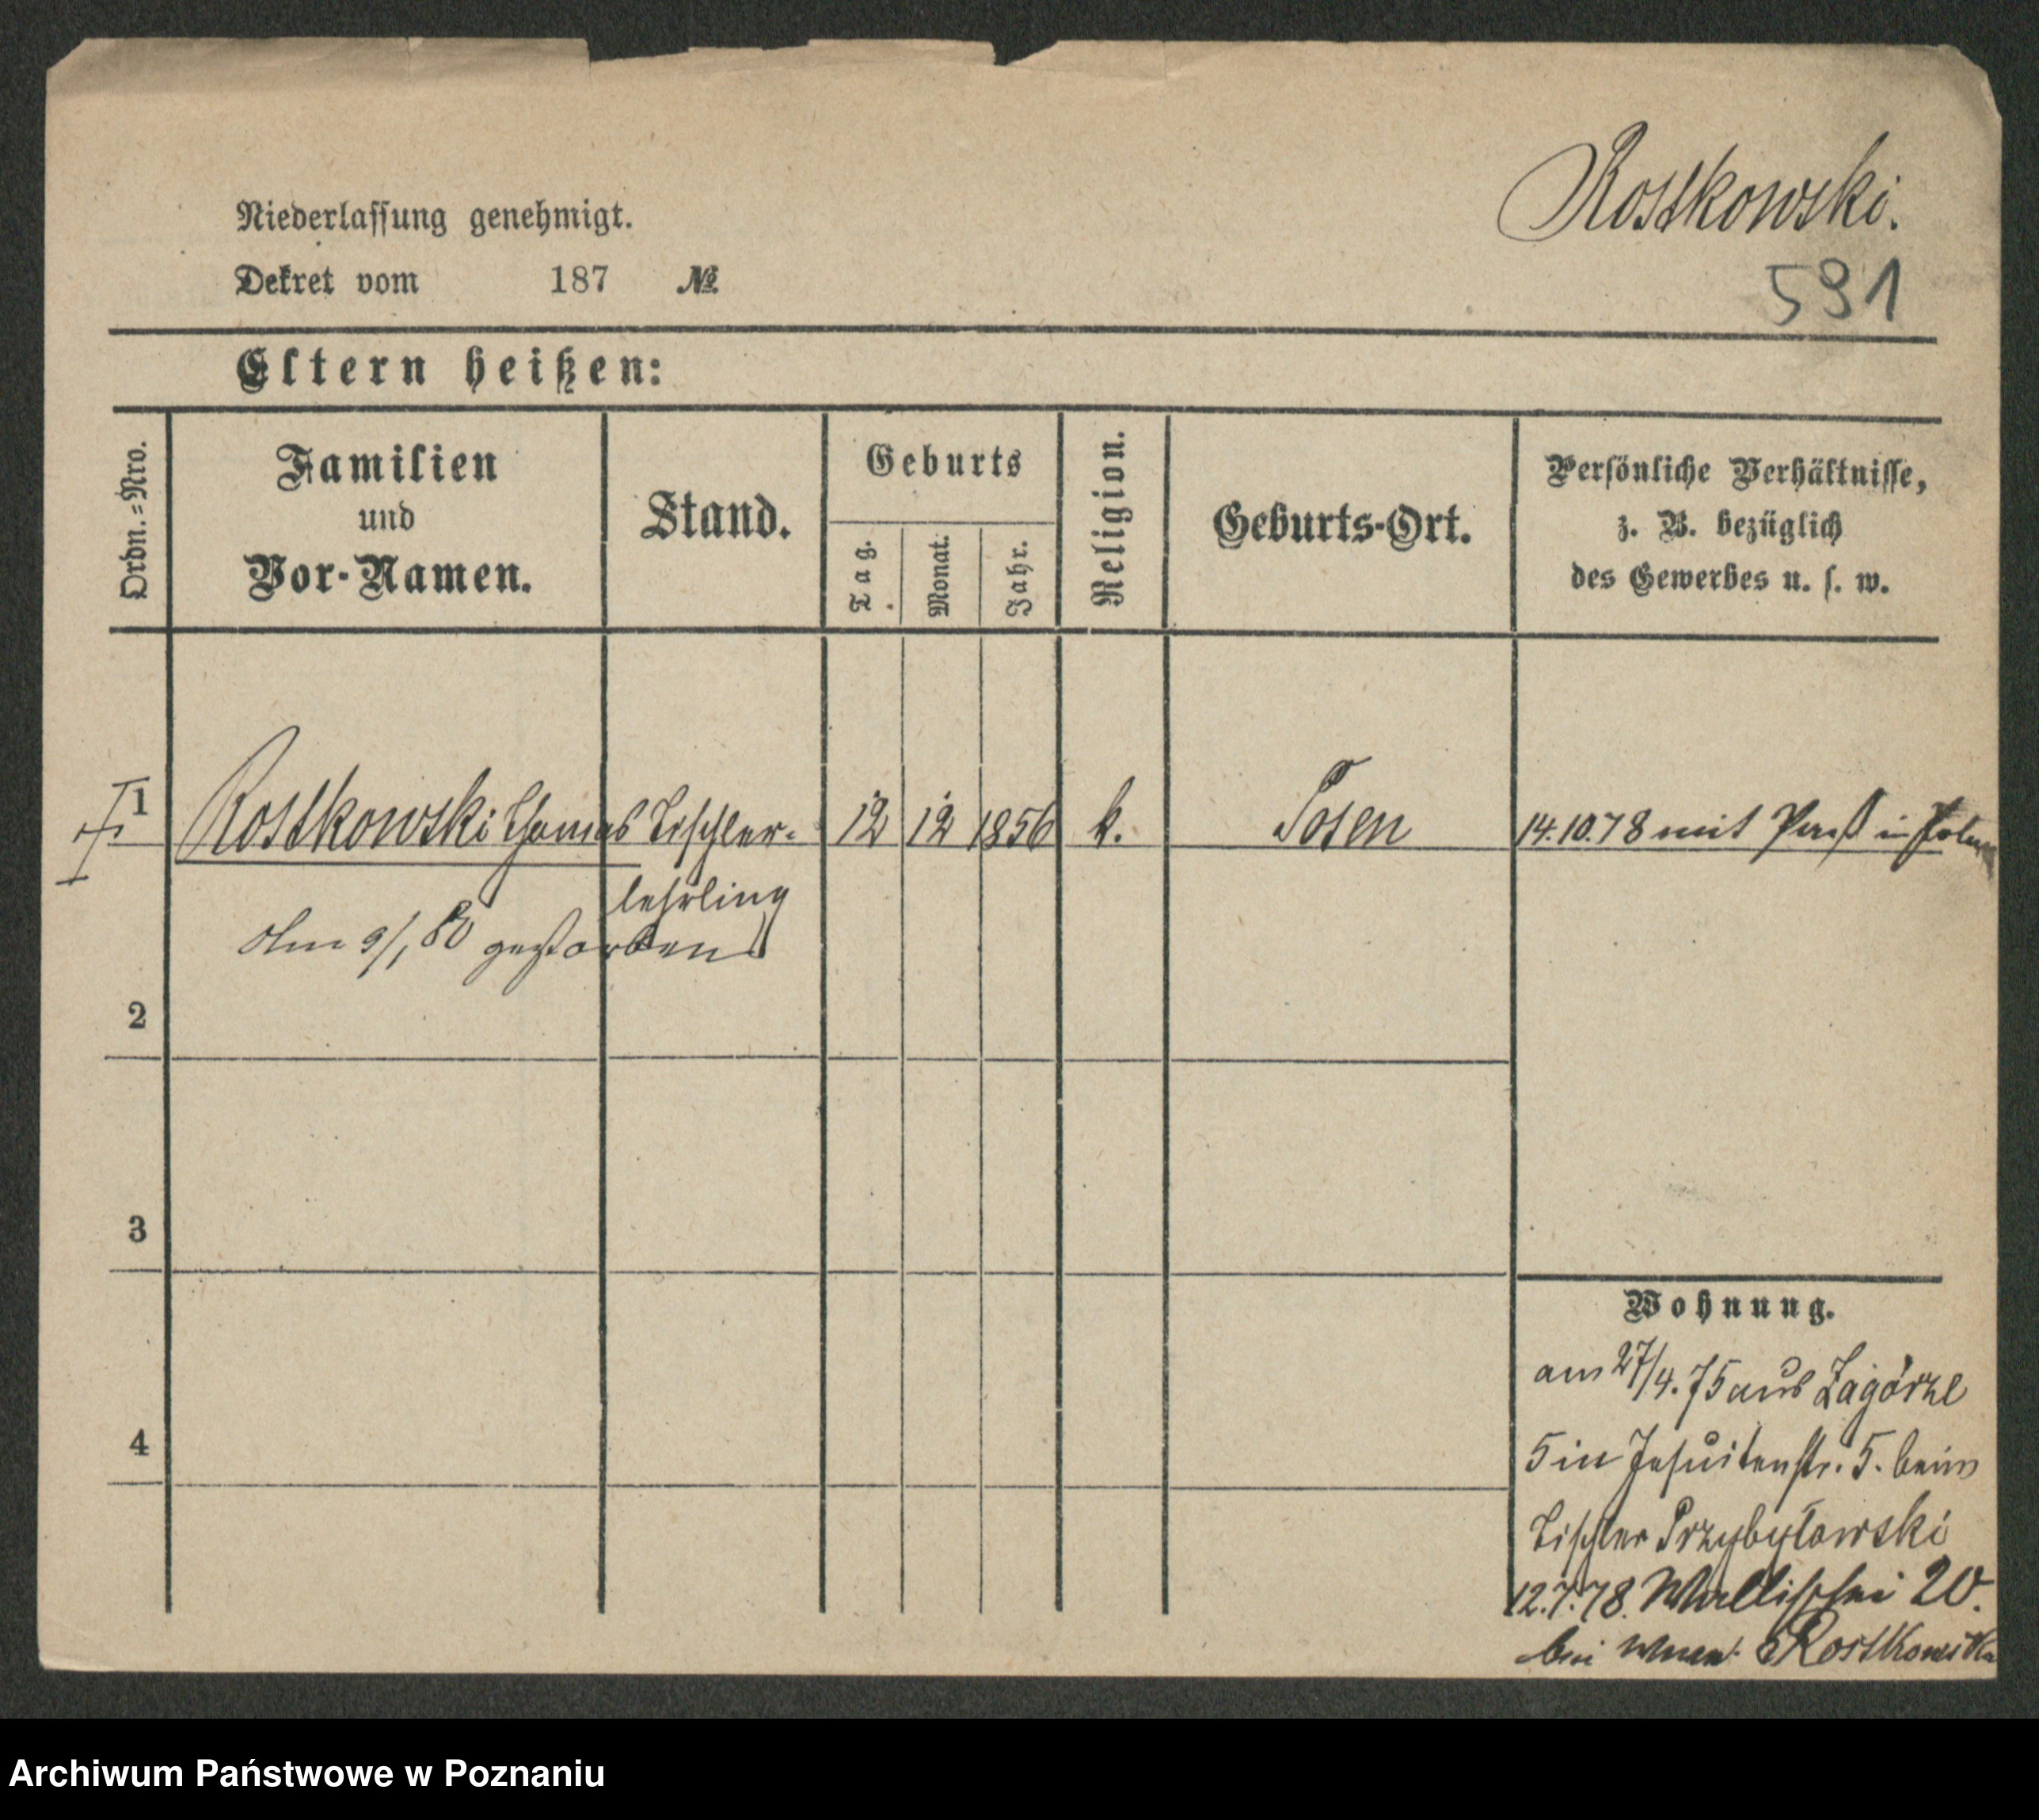 Rostkowski.
591
Niederlassung genehmigt.
Dekret vom 187 №
Eltern heißen:
Ordn.=Nro.
Familien
und
Vor-Namen.
Stand.
Geburts
Tag.
Monat.
Jahr.
Religion.
Geburts-Ort.
Persönliche Verhältnisse,
z. B. bezüglich
des Gewerbes u. s. w.
1 Rostkowski Thomas Tischler- 12 12 1856 k. Posen 14.10.78 mit Paß in Polen
lehrling
Am 9/1 80 gestorben
2
3
4
Wohnung.
am 27/4. 75 aus Zagórze
5 in Jesuitenstr. 5. beim
Tischler Przybyłowski
12.7.78. Wallischei 20.
bei Rostkowska
Archiwum Państwowe w Poznaniu